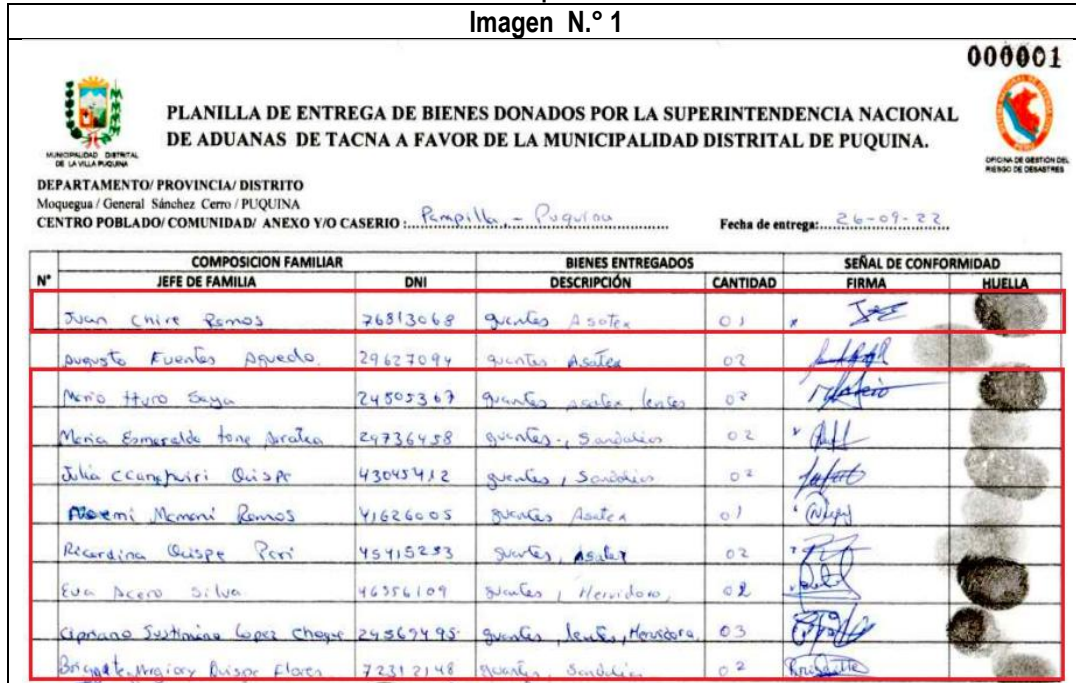 Imagen N.° 1
000001
MUNICIPALIDAD DISTRITAL
DE LA VILLA PUQUINA
PLANILLA DE ENTREGA DE BIENES DONADOS POR LA SUPERINTENDENCIA NACIONAL
DE ADUANAS DE TACNA A FAVOR DE LA MUNICIPALIDAD DISTRITAL DE PUQUINA.
OFICINA DE GESTION DEL
RIESGO DE DESASTRES
DEPARTAMENTO/ PROVINCIA/ DISTRITO
Moquegua / General Sánchez Cerro / PUQUINA
CENTRO POBLADO/ COMUNIDAD/ ANEXO Y/O CASERIO : Pampilla - Puquina Fecha de entrega: 26-09-22
COMPOSICION FAMILIAR BIENES ENTREGADOS SEÑAL DE CONFORMIDAD
N° JEFE DE FAMILIA DNI DESCRIPCIÓN CANTIDAD FIRMA HUELLA
Juan Chire Ramos 76813068 guantes Asatex 01
Augusto Fuentes 29627094 guantes Asatex 02
Mario Huro 24805367 guantes asatex, lentes 02
Maria Esmeralda 29736458 guantes, Sandalias 02
Julia Quispe 43045412 guantes, Sandalias 02
Noemi Mamani Ramos 41626005 guantes Asatex 01
Ricardina Quispe 45415283 guantes, asatex 02
Eva Acero Silva 46356109 guantes, Hervidora, 02
Cipriano Lopez Choque guantes, lentes, Hervidora, 03
Quispe Flores 72312148 guantes, Sandalias 02